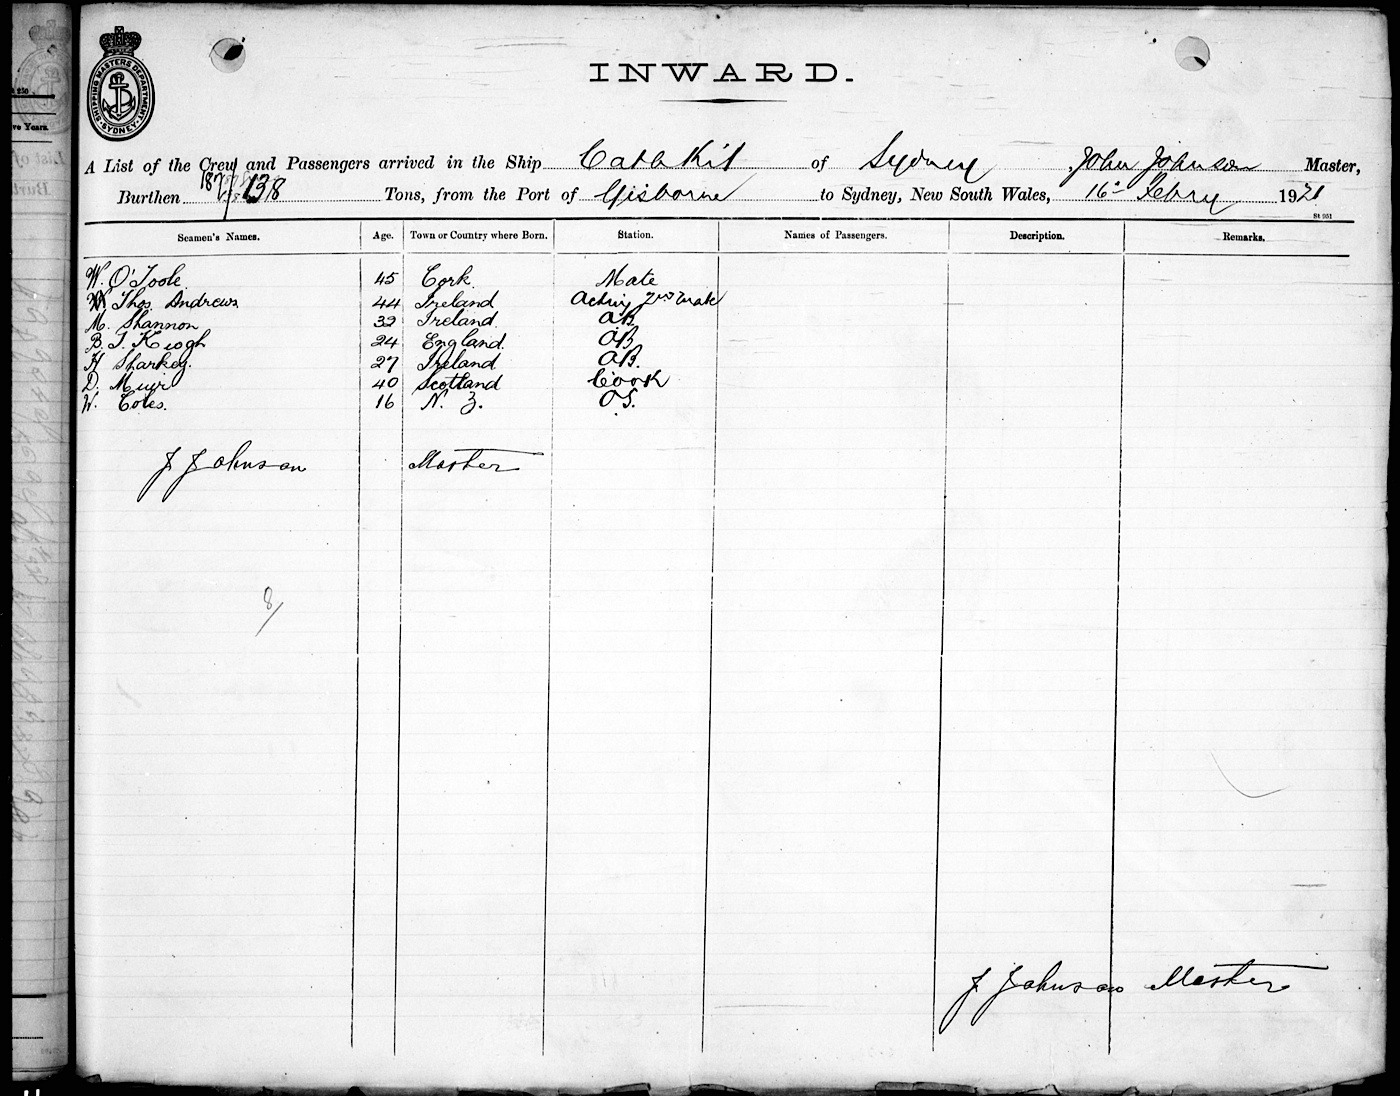 INWARD.
SHIPPING MASTERS DEPARTMENT
SYDNEY
A List of the Crew and Passengers arrived in the Ship Cath Kit of Sydney John Johnson Master,
Burthen 187/138 Tons, from the Port of Gisborne to Sydney, New South Wales, 16th Febry 1921
St 951
Seamen's Names. Age. Town or Country where Born. Station. Names of Passengers. Description. Remarks.
W. O'Toole 45 Cork Mate
Thos. Andrews 44 Ireland Acting 2nd Mate
M. Shannon 32 Ireland. AB
B. J. Keogh 24 England. AB
H Sharkey. 27 Ireland AB.
D. Muir 40 Scotland Cook
W. Coles. 16 N. Z. O.S.
J Johnson Master
8/
J Johnson Master
ve Years.
List of
Burt